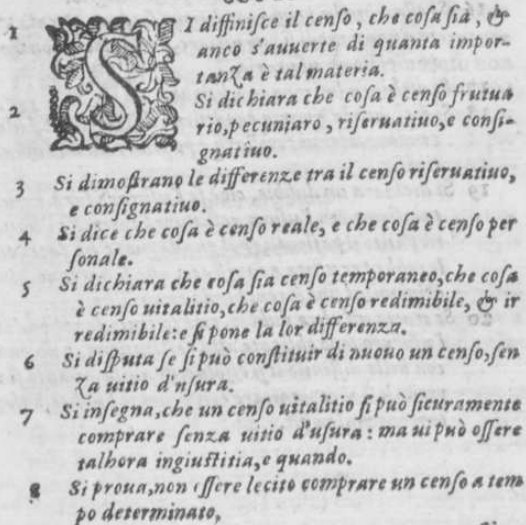 1 SI diffinisce il censo, che cosa sia, &
anco s'auuerte di quanta impor-
tanza è tal materia.
2 Si dichiara che cosa è censo frutua
rio, pecuniaro, riseruatiuo, e consi-
gnatiuo.
3 Si dimostrano le differenze tra il censo riseruatiuo,
e consignatiuo.
4 Si dice che cosa è censo reale, e che cosa è censo per
sonale.
5 Si dichiara che cosa sia censo temporaneo, che cosa
è censo uitalitio, che cosa è censo redimibile, & ir
redimibile: e si pone la lor differenza.
6 Si disputa se si può constituir di nuouo un censo, sen
za uitio d'usura.
7 Si insegna, che un censo uitalitio si può sicuramente
comprare senza uitio d'usura: ma ui può essere
talhora ingiustitia, e quando.
8 Si proua, non essere lecito comprare un censo a tem
po determinato,